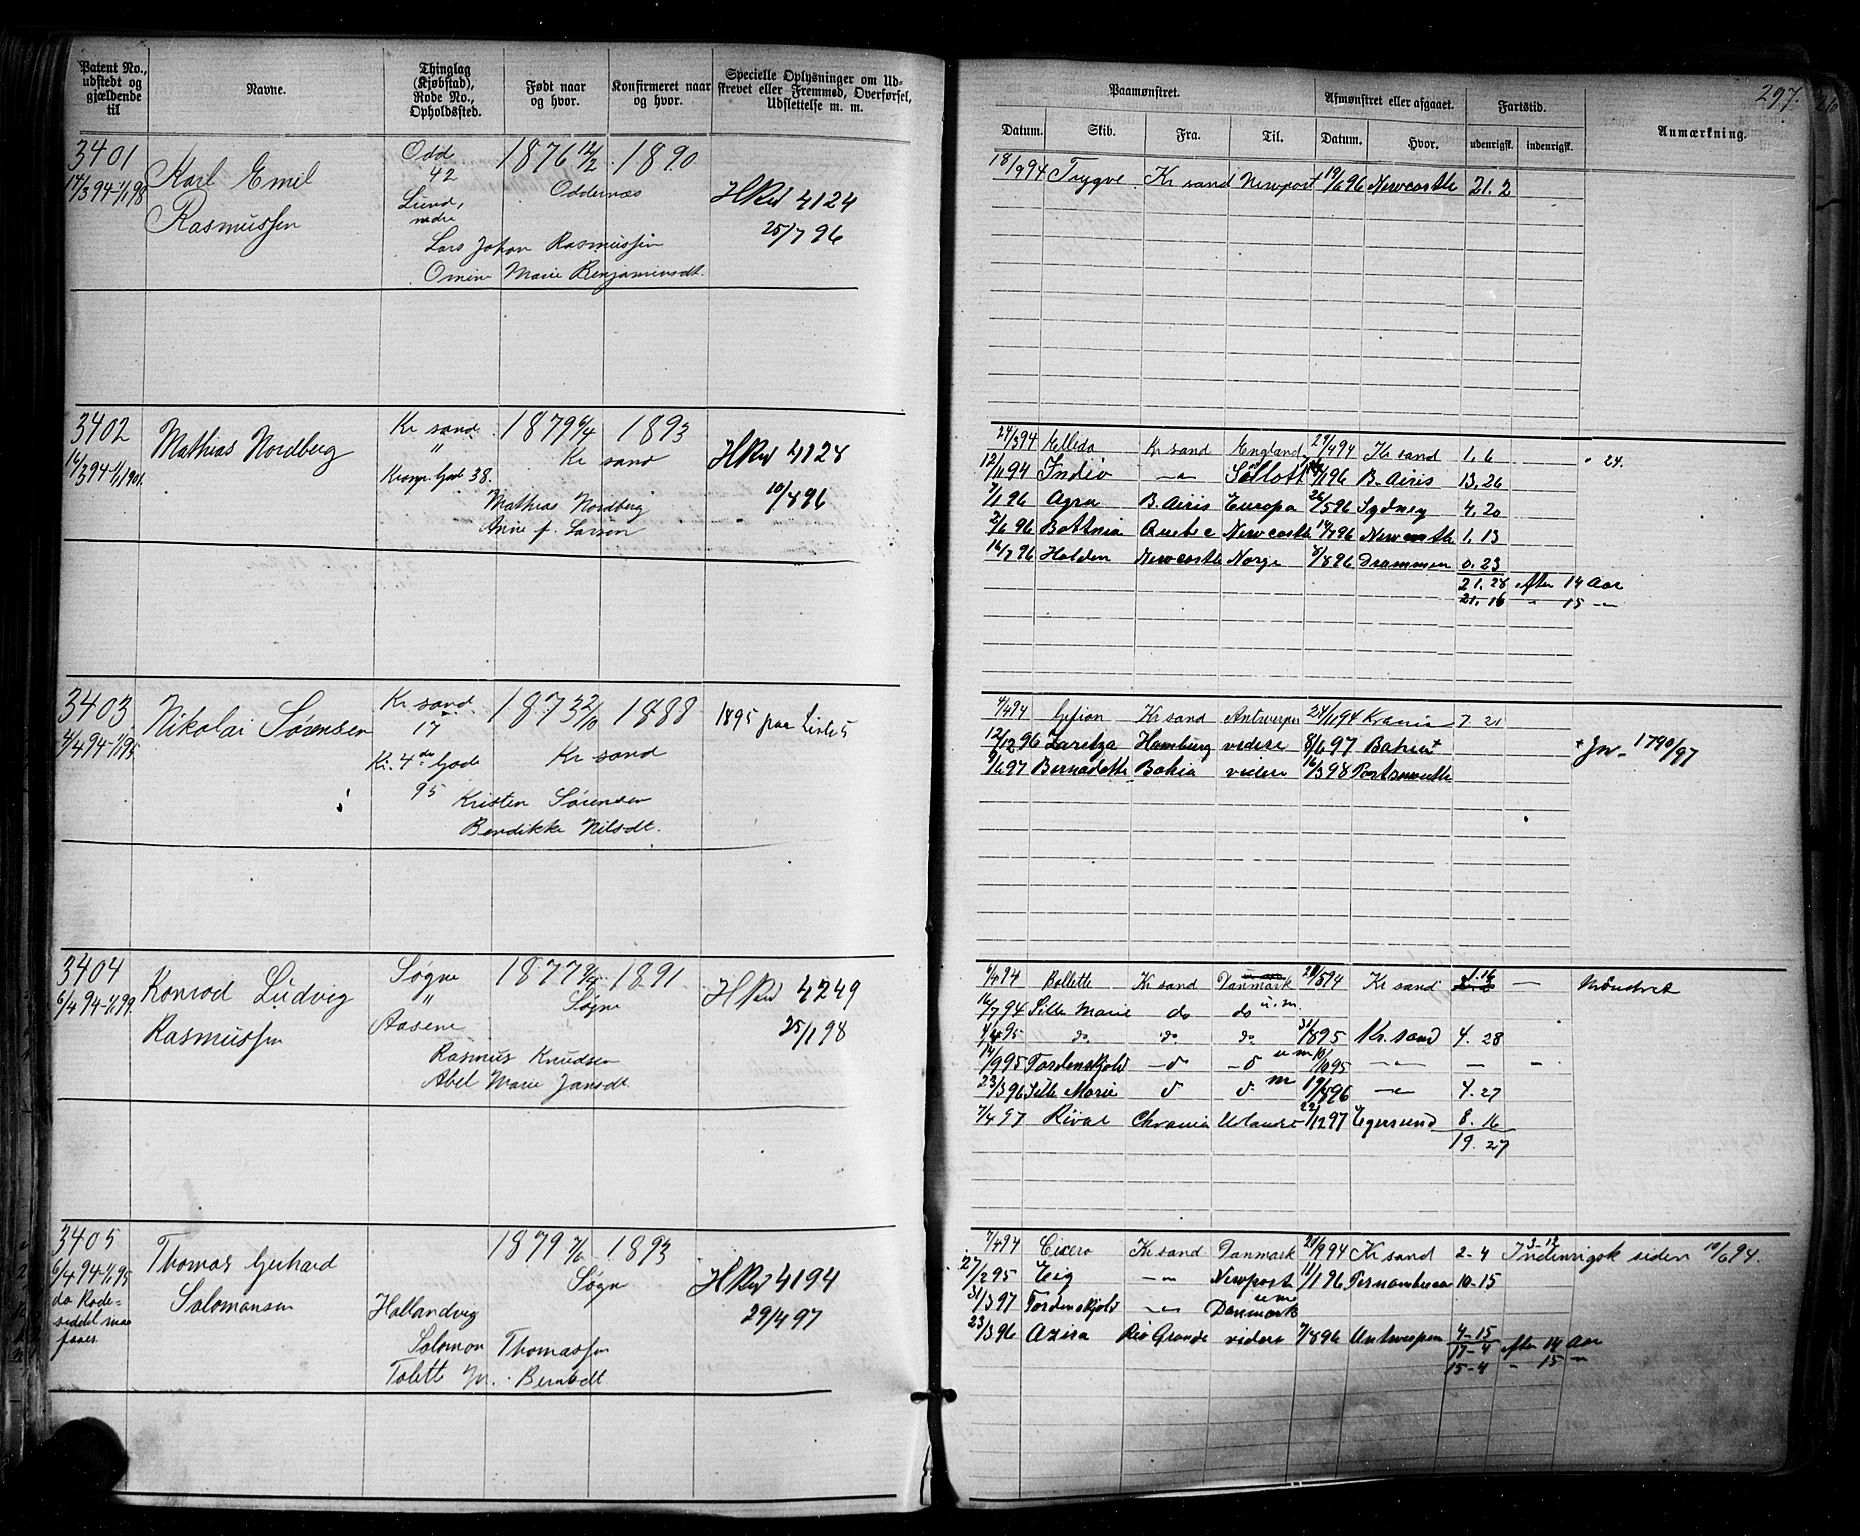 Patent No., udstedt og gjældende til
Navne.
Thinglag (Kjøbstad), Rode No., Opholdssted.
Født naar og hvor.
Konfirmeret naar og hvor.
Specielle Oplysninger om Udskrevet eller Fremmed, Overførsel, Udslettelse m. m.
3401
14/3 94-1/1 98
Karl Emil
Rasmussen
Odd
42
Lund,
nedre
1876 12/2
1890
Oddernæs
HRul 4124
25/7 96
Lars Johan Rasmussen
Marie Benjaminsdt.
3402
16/3 94-1/1 1901
Mathias Nordberg
Kr sand
"
38.
1879 6/4
1893
Kr sand
HRul 4128
10/4 96
Mathias Nordberg
Anne f. Larsen
3403
4/4 94-1/1 95
Nikolai Sørensen
Kr sand
17
Kr. 4de Gade
95
1873 22/10
1888
Kr sand
1895 paa Liste 5
Kristen Sørensen
Bendikke Nilsdt.
3404
6/4 94-1/1 99
Konrad Ludvig
Rasmussen
Søgne
"
Aasene
1877 9/4
1891
Søgne
HRul 4249
25/1 98
Rasmus Knudsen
Abel Marie Jansdt.
3405
6/4 94-1/1 95
da Rode-
siddel maa
faaes
Thomas Gerhard
Salomonsen
1879 7/6
1893
Søgne
Hollandvig
HRul 4194
29/4 97
Salomon Thomassen
Tolette M. Berntsdt
297.
Paamønstret.
Afmønstret eller afgaaet.
Fartstid.
Anmærkning.
Datum. Skib. Fra. Til. Datum. Hvor. udenrigsk. indenrigsk.
18/3 94 Trygve Kr sand Newport 19/1 96 Newcastle 21. 2
24/3 94 Ellida Kr sand England 29/4 94 Kr sand 1. 6 " 24.
12/11 94 India -"- 96 B. Airis 13. 26
7/1 96 Agra B. Airis Europa 26/5 96 Sydney 4. 20
2/6 96 Bottnia Quebec Newcastle 14/7 96 Newcastle 1. 13
16/7 96 Halden Newcastle Norge 8/8 96 Drammen 0. 23
21. 28 efter 14 Aar
21. 16 " 15 -"-
4/4 94 Gefion Kr sand Antwerpen 24/11 94 Krania 7. 21
12/12 96 Zaritza Hamburg videre 8/6 97 Bahia + + Jn. 1790/97
9/6 97 Bernadotte Bahia videre 16/3 98 Portsmouth
6/4 94 Bollette Kr sand Danmark 28/5 94 Kr sand 1. 16 — Mønstret
16/7 94 Sille Marie do do u. m.
95 do do do 31/8 95 Kr. sand 4. 28
14/9 95 Tordenskjold -d -d u m 10/10 95 -"- - -
23/3 96 Sille Marie d d m 19/8 96 -"- 4. 27
7/4 97 Rival Chrania Udlandet 22/12 97 Egersund 8. 16
19. 27
7/4 94 Cicero Kr sand Danmark 28/9 94 Kr sand 2-4 3-12 Indenrigsk siden 10/6 94.
27/2 95 Eig -"- Newport 11/1 96 Pernambuco 10-15
31/3 97 Tordenskjold -"- Danmark u m
23/3 96 Azira Rio Grande videre 7/8 96 Antwerpen 4-15
17-4 efter 14 Aar
15-4 " 15 "